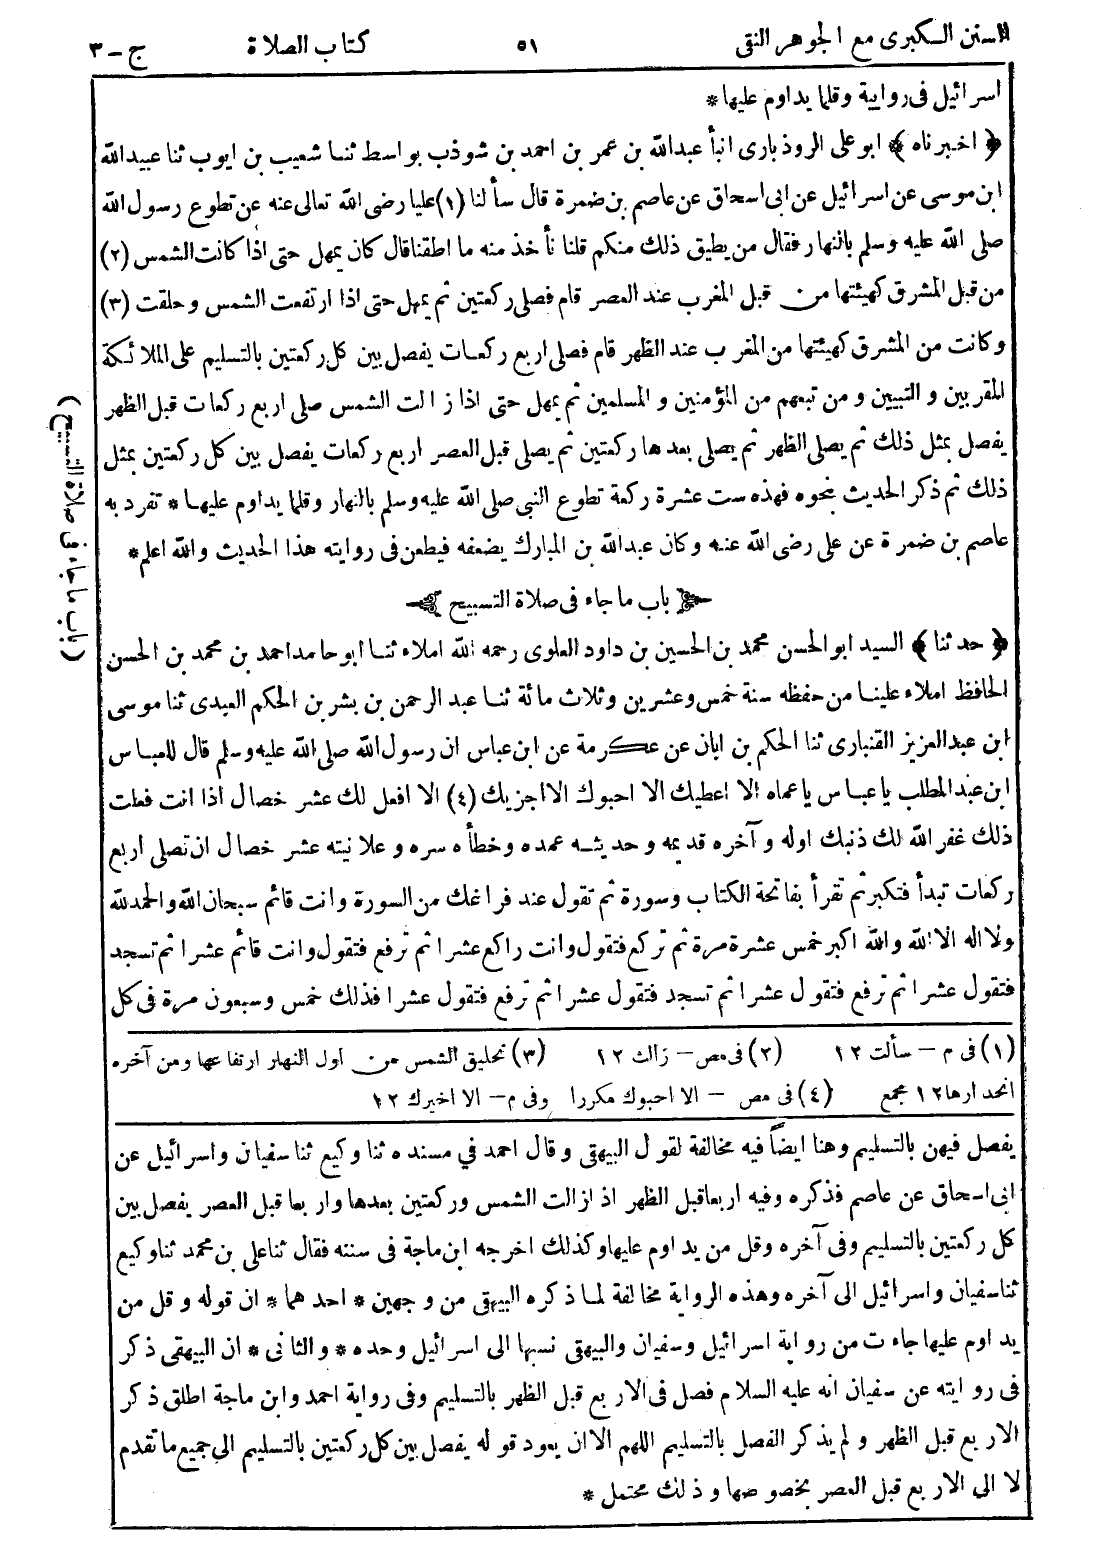 السنن الكبرى مع الجوهر النقى ٥١ كتاب الصلاة ج - ٣
اسرائيل فى رواية وقلما يداوم عليها *
﴿ اخبرناه ﴾ ابو على الروذبارى انبأ عبدالله بن عمر بن احمد بن شوذب بواسط ثنا شعيب بن ايوب ثنا عبيدالله
ابن موسى عن اسرائيل عن ابى اسحاق عن عاصم بن ضمرة قال سألنا (١) عليا رضى الله تعالى عنه عن تطوع رسول الله
صلى الله عليه وسلم بالنهار فقال من يطيق ذلك منكم قلنا نأخذ منه ما اطقنا قال كان يمهل حتى اذا كانت الشمس (٢)
من قبل المشرق كهيئتها من قبل المغرب عند العصر قام فصلى ركعتين ثم يمهل حتى اذا ارتفعت الشمس وحلقت (٣)
وكانت من المشرق كهيئتها من المغرب عند الظهر قام فصلى اربع ركعات يفصل بين كل ركعتين بالتسليم على الملائكة
المقربين و النبيين و من تبعهم من المؤمنين و المسلمين ثم يمهل حتى اذا زالت الشمس صلى اربع ركعات قبل الظهر
يفصل بمثل ذلك ثم يصلى الظهر ثم يصلى بعدها ركعتين ثم يصلى قبل العصر اربع ركعات يفصل بين كل ركعتين بمثل
ذلك ثم ذكر الحديث بنحوه فهذه ست عشرة ركعة تطوع النبى صلى الله عليه وسلم بالنهار وقلما يداوم عليها * تفرد به
عاصم بن ضمرة عن على رضى الله عنه وكان عبدالله بن المبارك يضعفه فيطعن فى روايته هذا الحديث والله اعلم *
باب ما جاء فى صلاة التسبيح
(باب ما جاء فى صلاة التسبيح)
﴿ حدثنا ﴾ السيد ابوالحسن محمد بن الحسين بن داود العلوى رحمه الله املاء ثنا ابو حامد احمد بن محمد بن الحسن
الحافظ املاء علينا من حفظه سنة خمس وعشرين وثلاث مائة ثنا عبد الرحمن بن بشر بن الحكم العبدى ثنا موسى
ابن عبدالعزيز القنبارى ثنا الحكم بن ابان عن عكرمة عن ابن عباس ان رسول الله صلى الله عليه وسلم قال للعباس
ابن عبدالمطلب يا عباس يا عماه الا اعطيك الا احبوك الا اجزيك (٤) الا افعل لك عشر خصال اذا انت فعلت
ذلك غفر الله لك ذنبك اوله و آخره قديمه و حديثه عمده وخطأه سره و علانيته عشر خصال ان تصلى اربع
ركعات تبدأ فتكبر ثم تقرأ بفاتحة الكتاب وسورة ثم تقول عند فراغك من السورة وانت قائم سبحان الله والحمدلله
ولا اله الا الله والله اكبر خمس عشرة مرة ثم تركع فتقول وانت راكع عشرا ثم ترفع فتقول وانت قائم عشرا ثم تسجد
فتقول عشرا ثم ترفع فتقول عشرا ثم تسجد فتقول عشرا ثم ترفع فتقول عشرا فذلك خمس وسبعون مرة فى كل
(١) فى م - سألت ١٢ (٢) فى مص - زالت ١٢ (٣) تحليق الشمس من اول النهار ارتفاعها ومن آخره
انحدارها ١٢ مجمع (٤) فى مص - الا احبوك مكررا وفى م - الا اخيرك ١٢
يفصل فيهن بالتسليم وهنا ايضاً فيه مخالفة لقول البيهقى وقال احمد فى مسنده ثنا وكيع ثنا سفيان واسرائيل عن
ابى اسحاق عن عاصم فذكره وفيه اربعا قبل الظهر اذ ازالت الشمس وركعتين بعدها واربعا قبل العصر يفصل بين
كل ركعتين بالتسليم وفى آخره وقل من يداوم عليها وكذلك اخرجه ابن ماجة فى سننه فقال ثنا على بن محمد ثنا وكيع
ثنا سفيان واسرائيل الى آخره وهذه الرواية مخالفة لما ذكره البيهقى من وجهين * احدهما * ان قوله و قل من
يداوم عليها جاءت من رواية اسرائيل وسفيان والبيهقى نسبها الى اسرائيل وحده * والثانى * ان البيهقى ذكر
فى روايته عن سفيان انه عليه السلام فصل فى الاربع قبل الظهر بالتسليم وفى رواية احمد وابن ماجة اطلق ذكر
الاربع قبل الظهر و لم يذكر الفصل بالتسليم اللهم الا ان يعود قوله يفصل بين كل ركعتين بالتسليم الى جميع ما تقدم
لا الى الاربع قبل العصر بخصوصها وذلك محتمل *